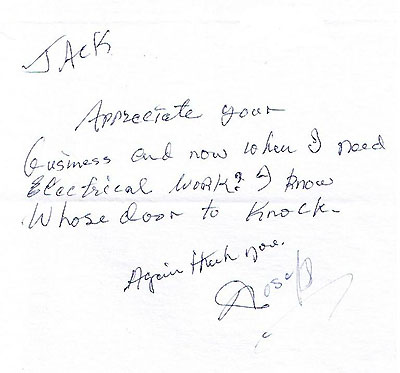 JACK
Appreciate your
business and now when I need
Electrical work? I know
Whose door to knock.
Again thank you.
Joseph